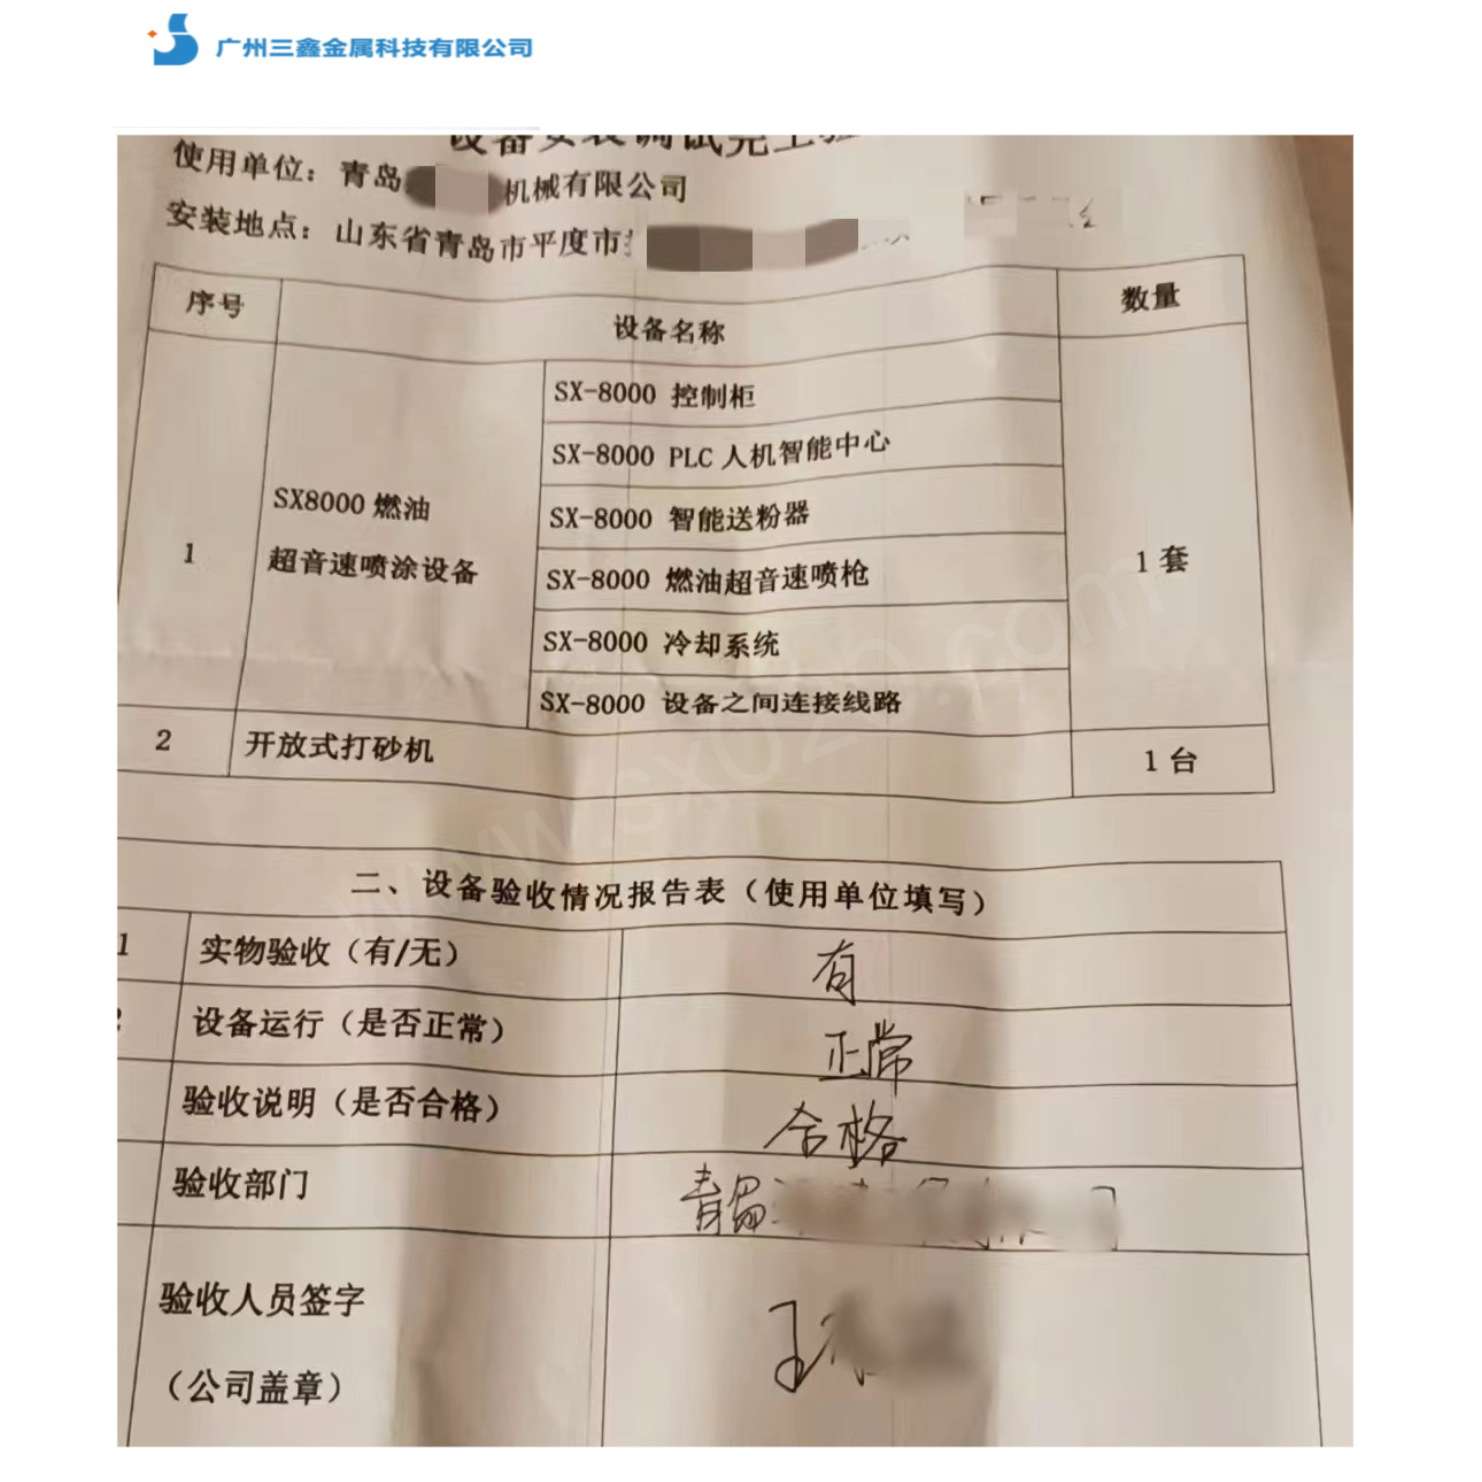 广州三鑫金属科技有限公司
设备安装调试完工验
使用单位：青岛 机械有限公司
安装地点：山东省青岛市平度市
序号 设备名称 数量
1 SX8000燃油 超音速喷涂设备 1套
SX-8000 控制柜
SX-8000 PLC人机智能中心
SX-8000 智能送粉器
SX-8000 燃油超音速喷枪
SX-8000 冷却系统
SX-8000 设备之间连接线路
2 开放式打砂机 1台
二、设备验收情况报告表（使用单位填写）
1 实物验收（有/无） 有
2 设备运行（是否正常） 正常
验收说明（是否合格） 合格
验收部门 青岛
验收人员签字 王
（公司盖章）
www.sx020.com